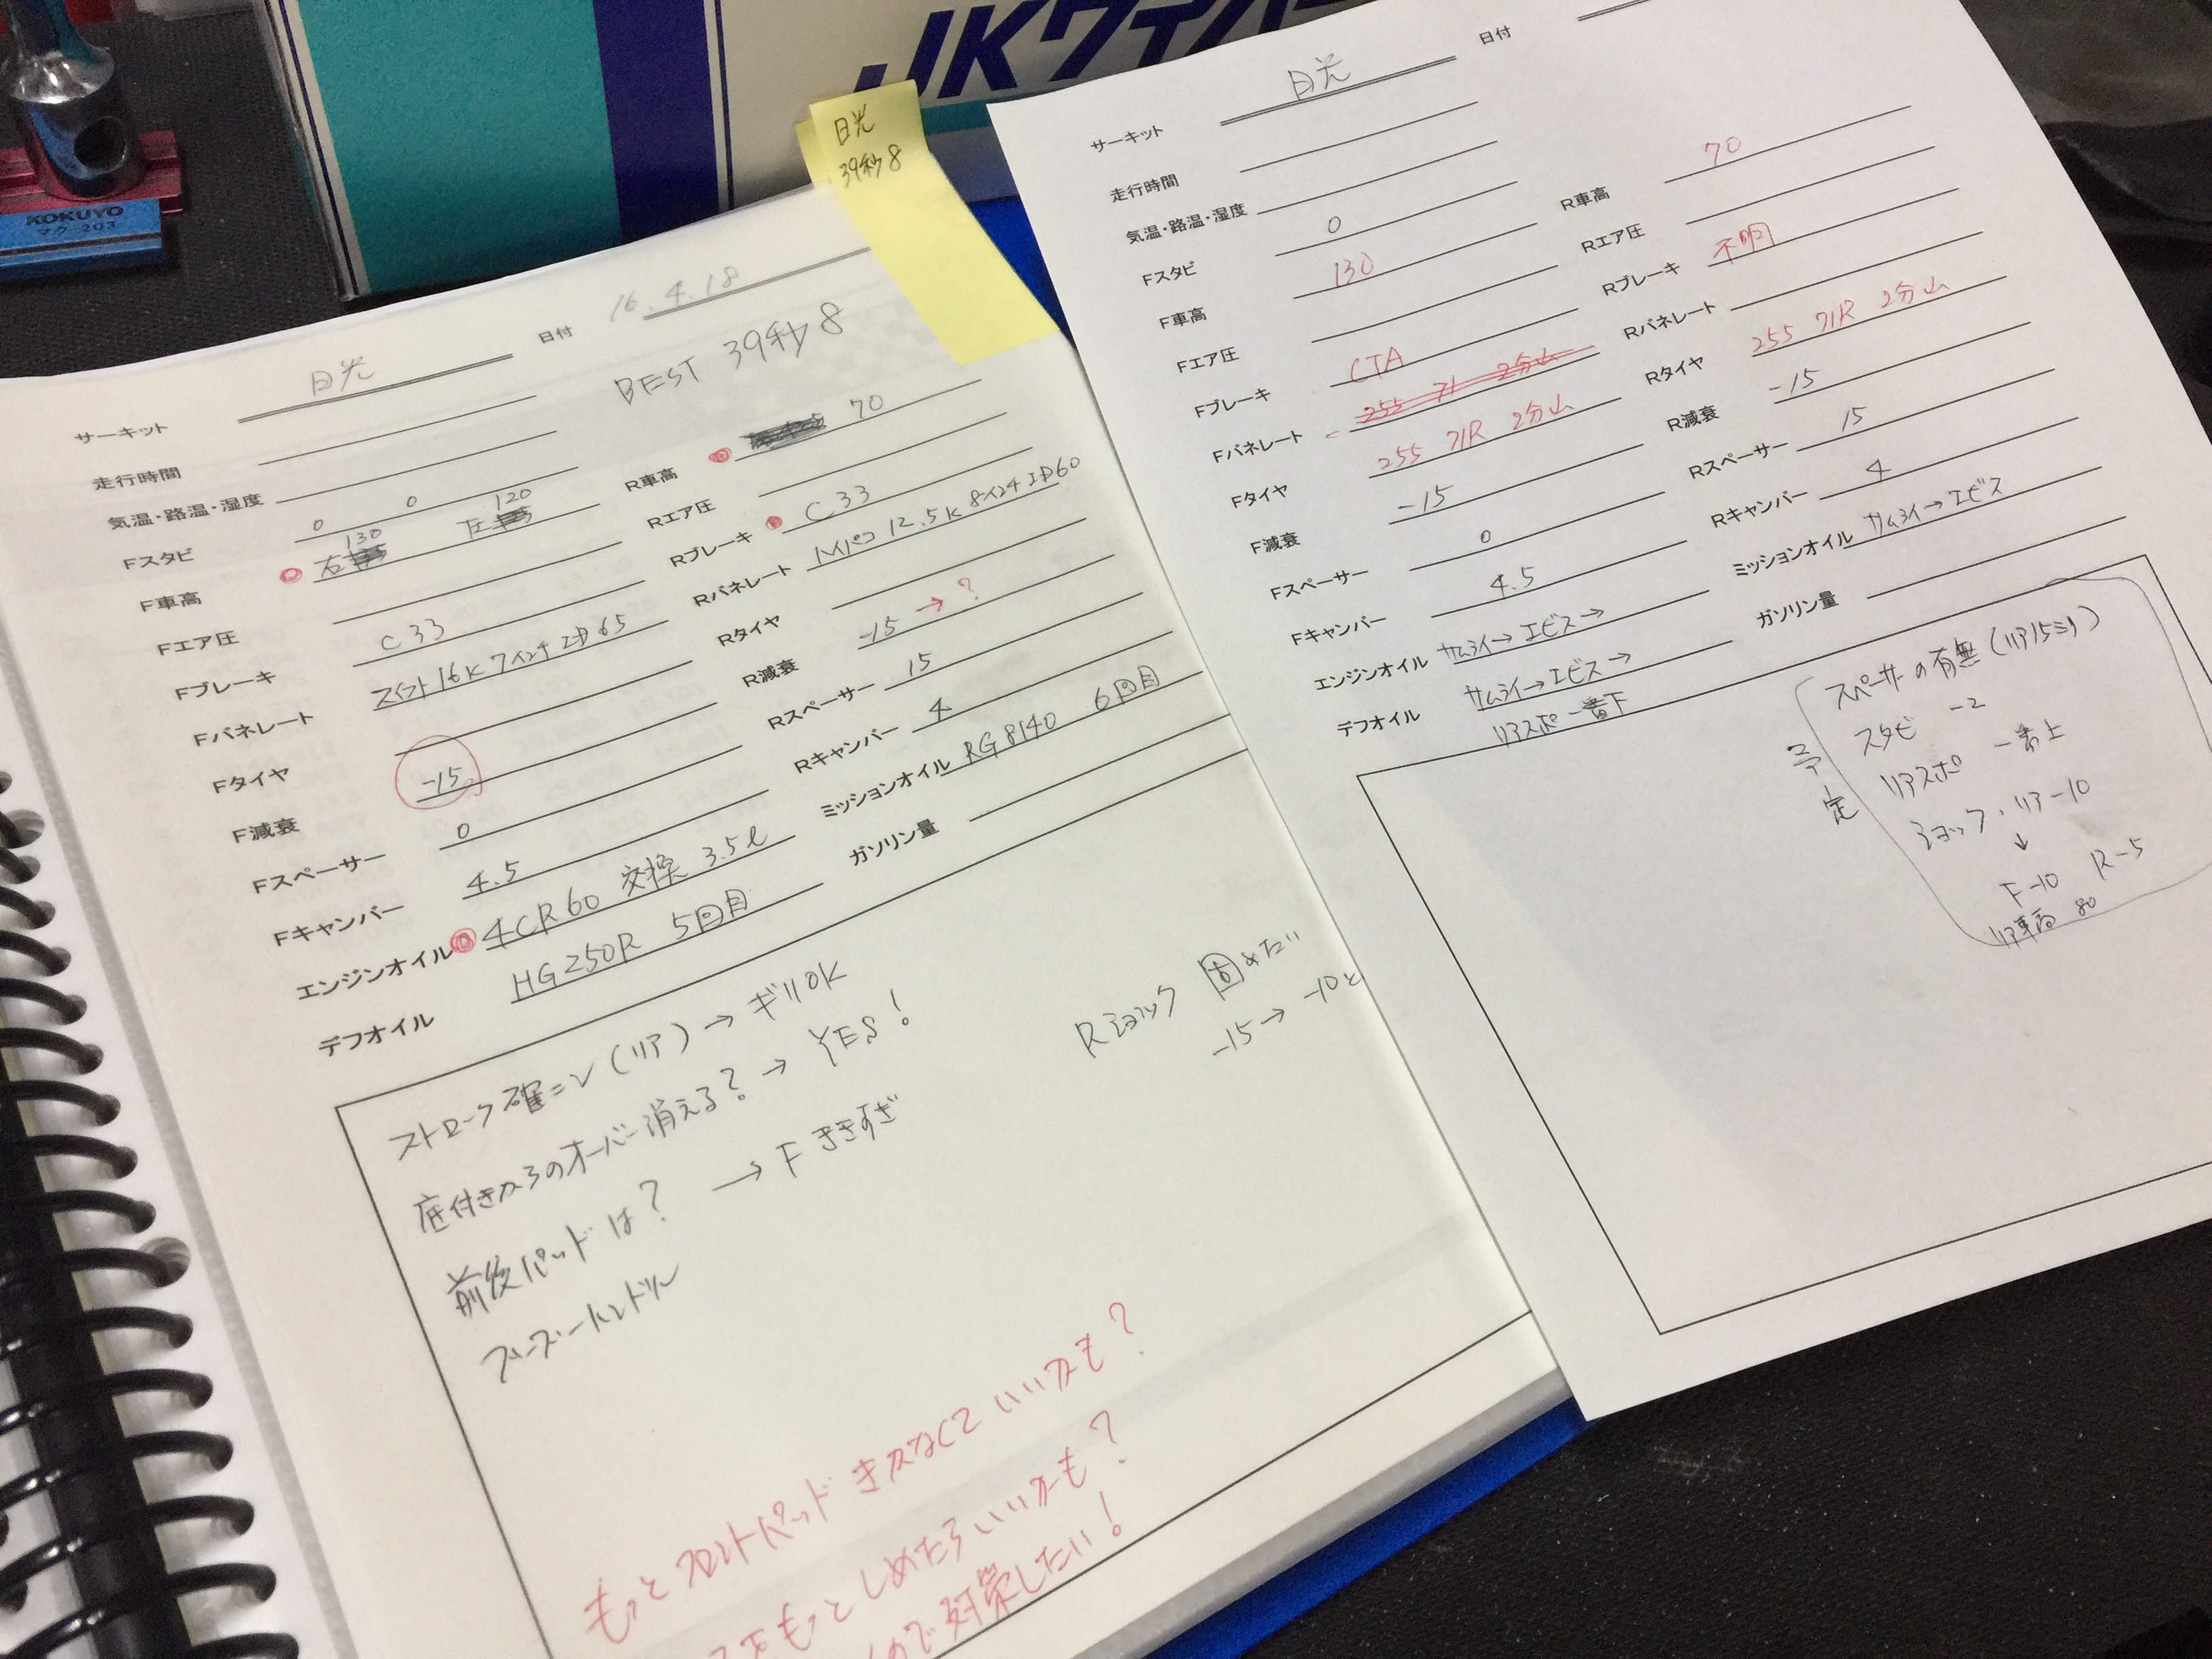 JKワイパー
KOKUYO
マク-203
日光
39秒8
サーキット 日光 日付 16.4.18
BEST 39秒8
走行時間
気温・路温・湿度
Fスタビ 0 0
F車高 右 130 左 120 R車高 70
Fエア圧 Rエア圧
Fブレーキ C33 Rブレーキ C33
Fバネレート スイフト16K 7インチ ID65 Rバネレート ハイパコ 12.5K 8インチ ID60
Fタイヤ Rタイヤ
F減衰 -15 R減衰 -15 → ?
Fスペーサー 0 Rスペーサー 15
Fキャンバー 4.5 Rキャンバー 4
エンジンオイル 4CR60 交換 3.5ℓ ミッションオイル RG8140 6回目
デフオイル HG250R 5回目 ガソリン量
ストローク確ニン(リア) → ギリOK
底付きからのオーバー消える? → YES!
前後パッドは? → F ききすぎ
Rショック 固めたい
-15 → -10と
もっと フロントパッド きかなくて いいかも?
もっと しめたらいいかも?
ので対策したい!
サーキット 日光 日付
走行時間
気温・路温・湿度
Fスタビ 0
F車高 130 R車高 70
Fエア圧 Rエア圧
Fブレーキ CTA Rブレーキ 不明
Fバネレート 255 71 2分山 Rバネレート
Fタイヤ 255 71R 2分山 Rタイヤ 255 71R 2分山
F減衰 -15 R減衰 -15
Fスペーサー 0 Rスペーサー 15
Fキャンバー 4.5 Rキャンバー 4
エンジンオイル サムライ→エビス→ ミッションオイル サムライ→エビス
デフオイル サムライ→エビス→ ガソリン量
リアスポ 一番下
予定
スペーサーの有無(リア15ミリ)
スタビ -2
リアスポ 一番上
ショック・リア-10
↓
F-10 R-5
リア車高 80